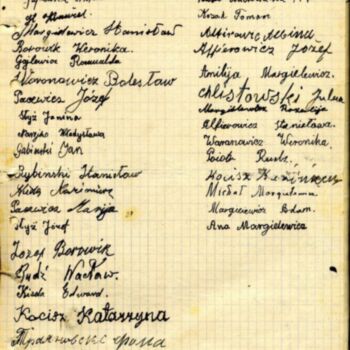 Margielewicz Stanisław
Borowik Weronika.
Gąglewicz Romualda
Woronowicz Bolesław
Pacewicz Józef
Hyż Janina
Naruszko Władysława
Gabinski Jan
Rybinski Stanisław
Kazimierz
Pacewicz Marja
Hyż Józef
Jozef Borowik
Rudź Wacław.
Kisiel Edward.
Kocisz Katarzyna
Kozak Roman
Alfirowicz Albina
Alfierowicz Józef
Amilja Margielewicz.
Chlistowski Juljan
Margielewicz Rozalija
Alfierowicz Stanisław.
Waranowicz Weronika.
Piotr Rudź.
Kocisz
Michał Margielewicz
Margiewicz Adam.
Ana Margielewicz